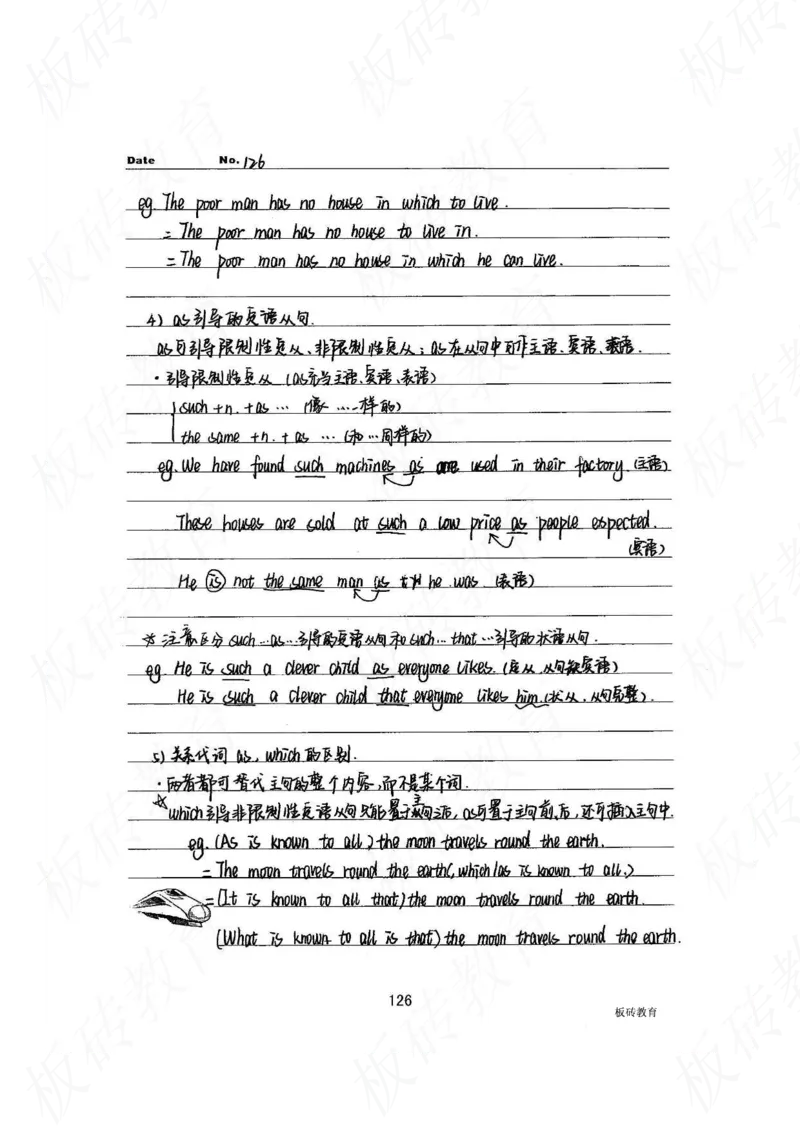 Date No. 126
eg. The poor man has no house in which to live.
= The poor man has no house to live in.
= The poor man has no house in which he can live.
4) as引导的定语从句.
as可引导限制性定从、非限制性定从；as在从句中可作主语、宾语、表语.
·引导限制性定从 (as充当主语、宾语、表语)
such + n. + as … (像…一样的)
the same + n. + as … (和…同样的)
eg. We have found such machines as are used in their factory. (主语)
These houses are sold at such a low price as people expected.
(宾语)
He is not the same man as he was (表语)
※ 注意区分 such…as…引导的定语从句和 such… that …引导的状语从句.
eg. He is such a clever child as everyone likes. (定从, 从句缺宾语)
He is such a clever child that everyone likes him. (状从, 从句完整).
5) 关系代词 as, which 的区别.
·两者都可替代主句的整个内容,而不是某个词.
☆ which引导非限制性定语从句只能置于主句之后, as可置于主句前、后, 还可插入主句中.
eg. (As is known to all) the moon travels round the earth.
= The moon travels round the earth(, which/as is known to all.)
= (It is known to all that) the moon travels round the earth.
(What is known to all is that) the moon travels round the earth.
126
板砖教育